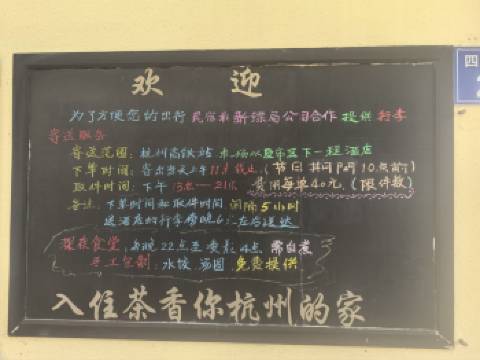 欢 迎
为了方便您的出行 民宿和新绿局公司合作 提供 行李
寄送服务
寄送范围: 杭州高铁站 以及下一程酒店
下单时间: 寄出当天上午11点截止 (节日期间10点前)
取件时间: 下午13点—21点 费用每单40元 (限件数)
备注: 下单时间和取件时间 间隔5小时
送酒店的行李傍晚6:左右送达
深夜食堂: 每晚22点至凌晨4点 需自煮
手工包制: 水饺 汤圆 免费提供
入住茶香你杭州的家
四